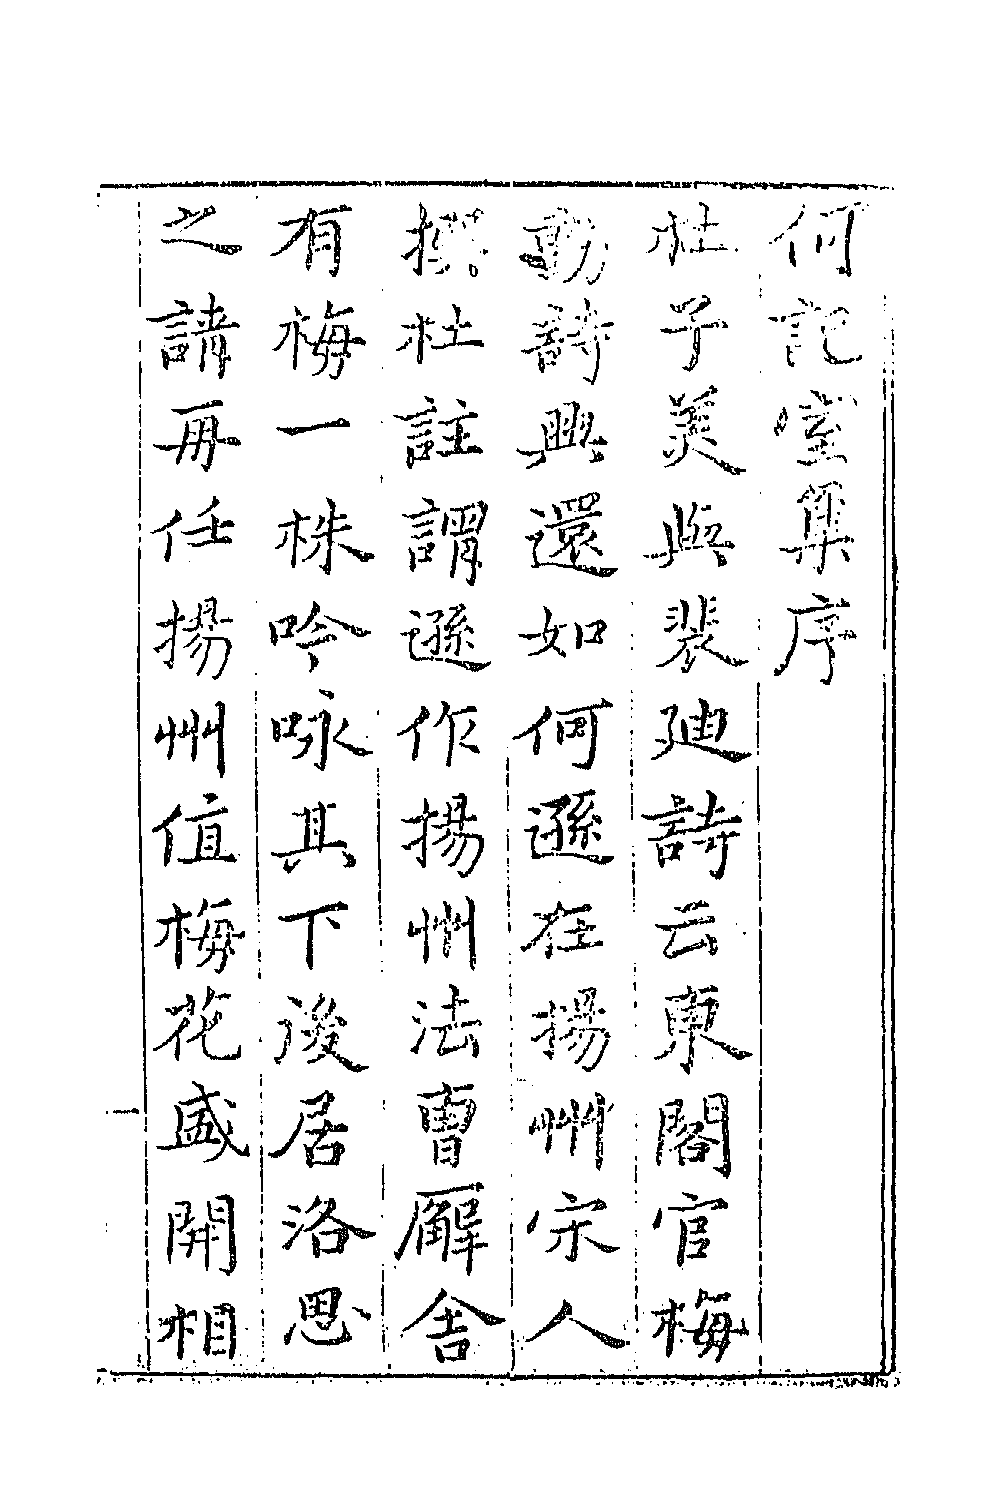 何記室集序
杜子美與裴廸詩云東閣官梅
動詩興還如何遜在揚州宋人
撰杜註謂遜作揚州法曹廨舍
有梅一株吟咏其下後居洛思
之請再任揚州值梅花盛開相
一